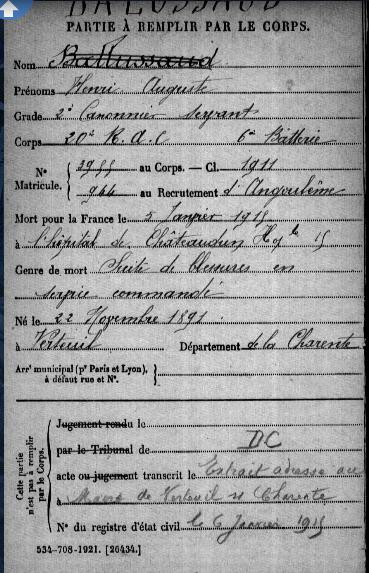 BALUSSAUD
PARTIE À REMPLIR PAR LE CORPS.
Nom Ballussaud
Prénoms Henri Auguste
Grade 2e Canonnier servant
Corps 20e R.A.C 6e Batterie
No Matricule. { 3955 au Corps. — Cl. 1911
944 au Recrutement d'Angoulême
Mort pour la France le 5 Janvier 1915
à l'hôpital de Châteaudun
Genre de mort Suite de blessures en
service commandé
Né le 22 Novembre 1891
à Verteuil Département de la Charente
Arrt municipal (pr Paris et Lyon), à défaut rue et No. }
Cette partie n'est pas à remplir par le Corps.
Jugement rendu le
par le Tribunal de DC
acte ou jugement transcrit le Extrait adressé au
à Maire de Verteuil s Charente
No du registre d'état civil le 6 Janvier 1915
534-708-1921. [26434.]